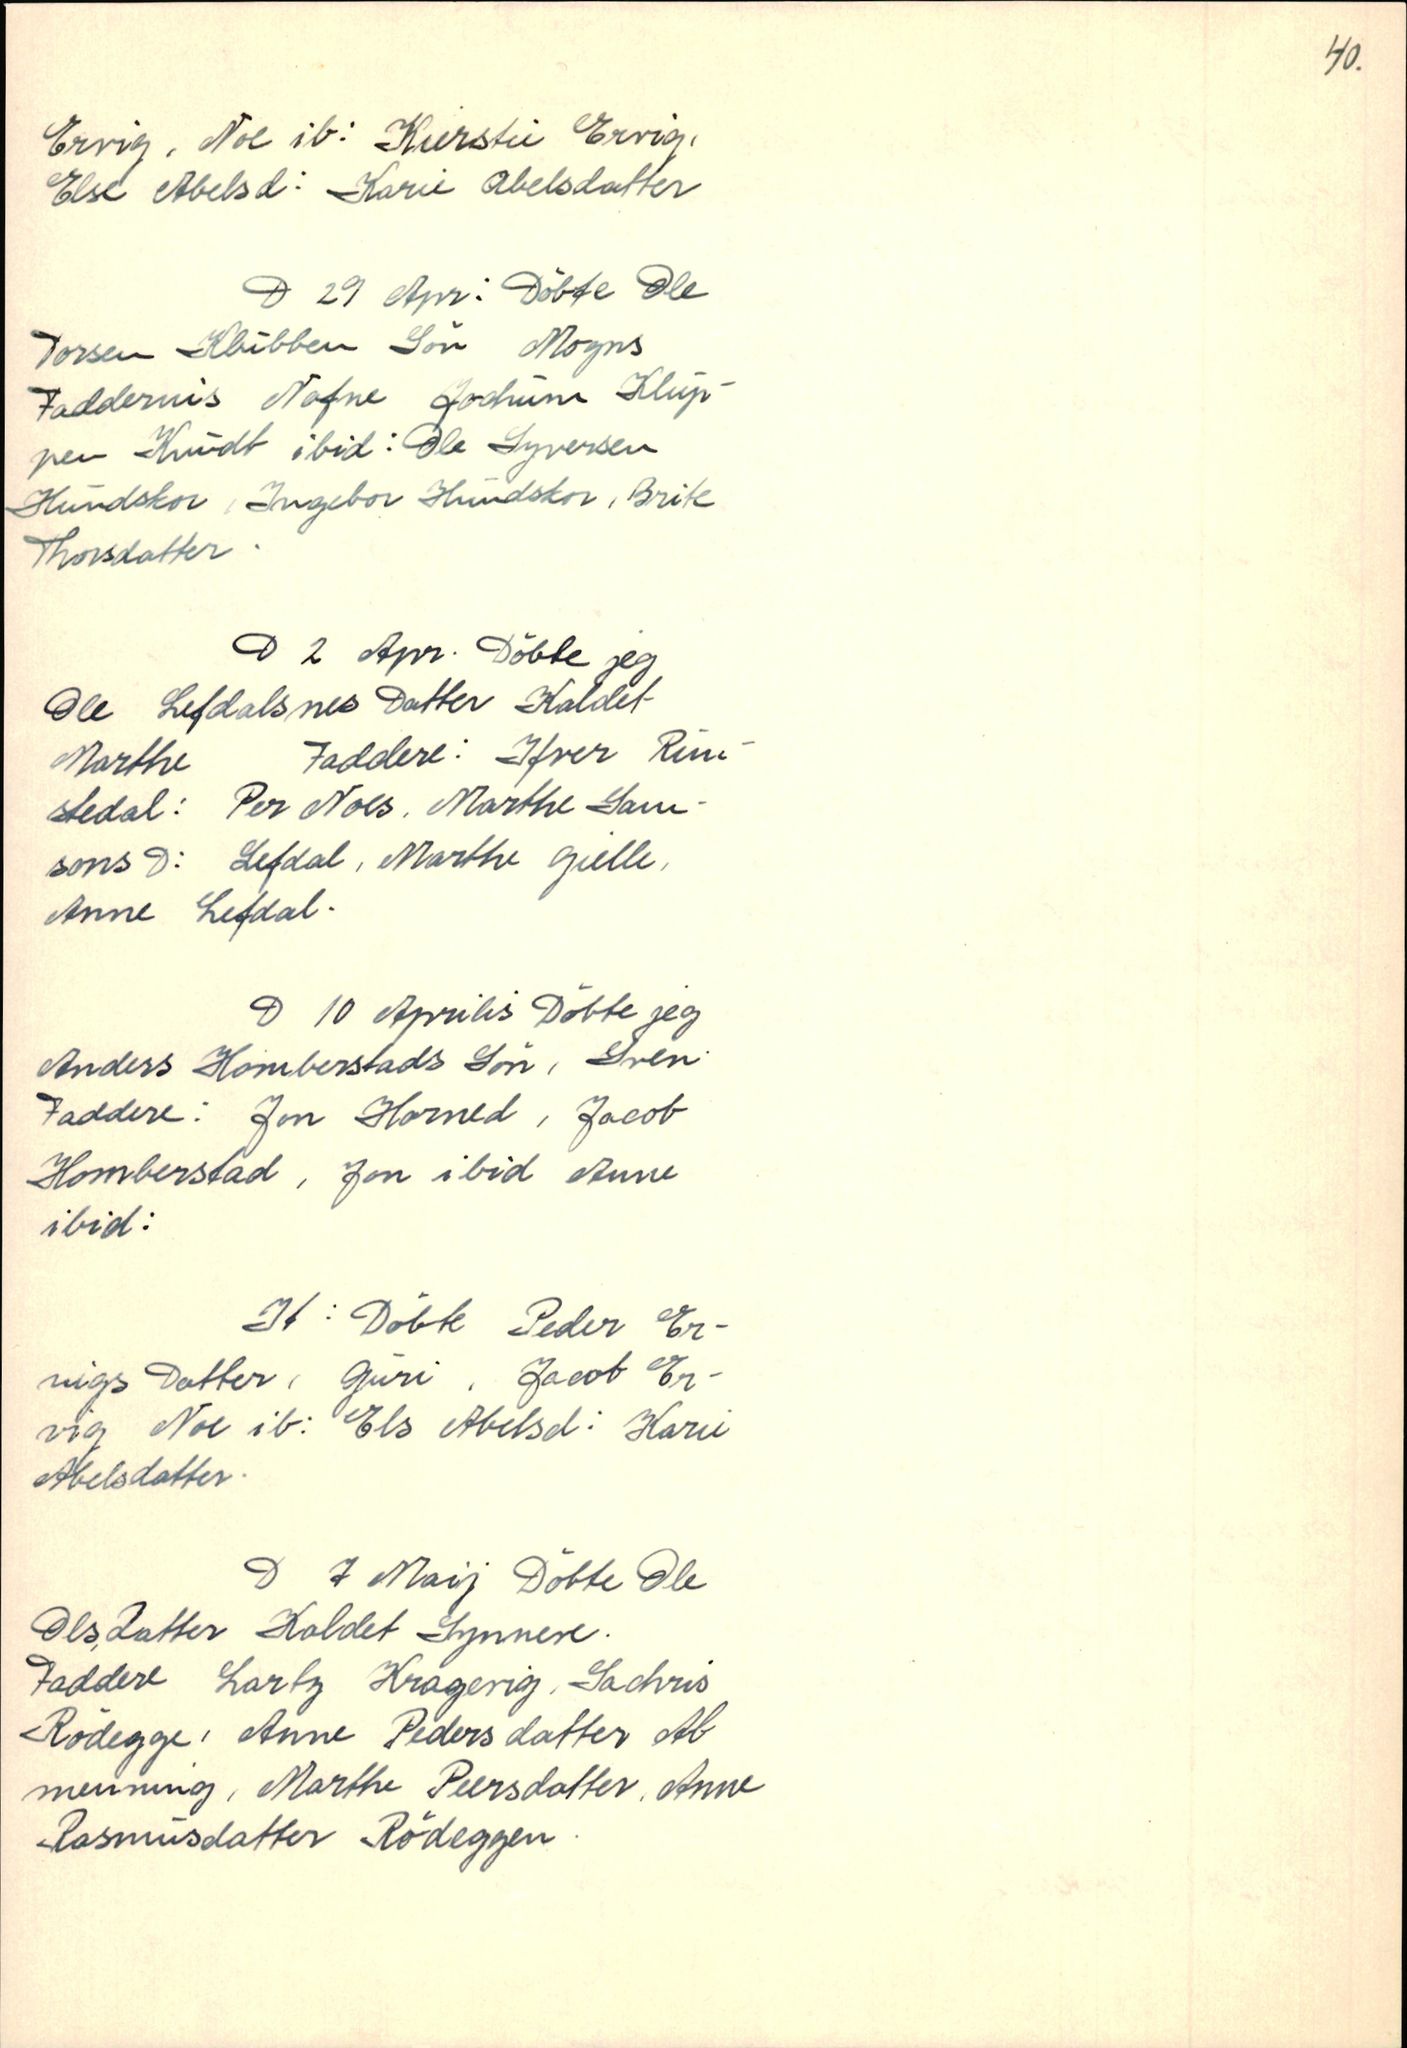 40.
Ervig, Noe ib: Kierstie Ervig,
Else Abelsd: Karie Abelsdatter
D 29 Apr: Döbte Ole
Torsen Klubben Sön Mogns
Faddernis Nafne Jochum Klup-
pen Knudt ibid: Ole Syversen
Hundskor, Ingebor Hundskor, Brite
Thorsdatter.
D 2 Apr. Döbte jeg
Ole Lefdalsnes Datter Kaldet
Marthe Faddere: Ifver Rim-
stedal: Per Noes, Marthe Sam-
sons D: Lefdal, Marthe Gielle,
Anne Lefdal.
D 10 Aprilis Döbte jeg
Anders Homberstads Sön, Sven.
Faddere: Jon Horned, Jacob
Homberstad, Jon ibid Anne
ibid:
It: Döbte Peder Er-
vigs Datter, Guri, Jacob Er-
vig Noe ib: Els Abelsd: Karie
Abelsdatter.
D 7 Maij Döbte Ole
Ols, Datter Kaldet Synnere.
Faddere Lartz Kragevig, Sachris
Rödegge, Anne Pedersdatter Al
menning, Marthe Peersdatter, Anne
Rasmusdatter Rödeggen.